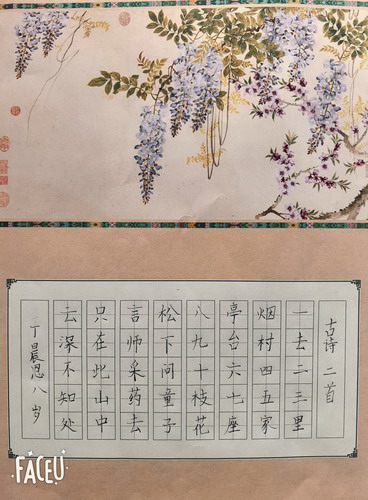 古诗二首
一去二三里
烟村四五家
亭台六七座
八九十枝花
松下问童子
言师采药去
只在此山中
云深不知处
丁晨恩八岁
FACEU